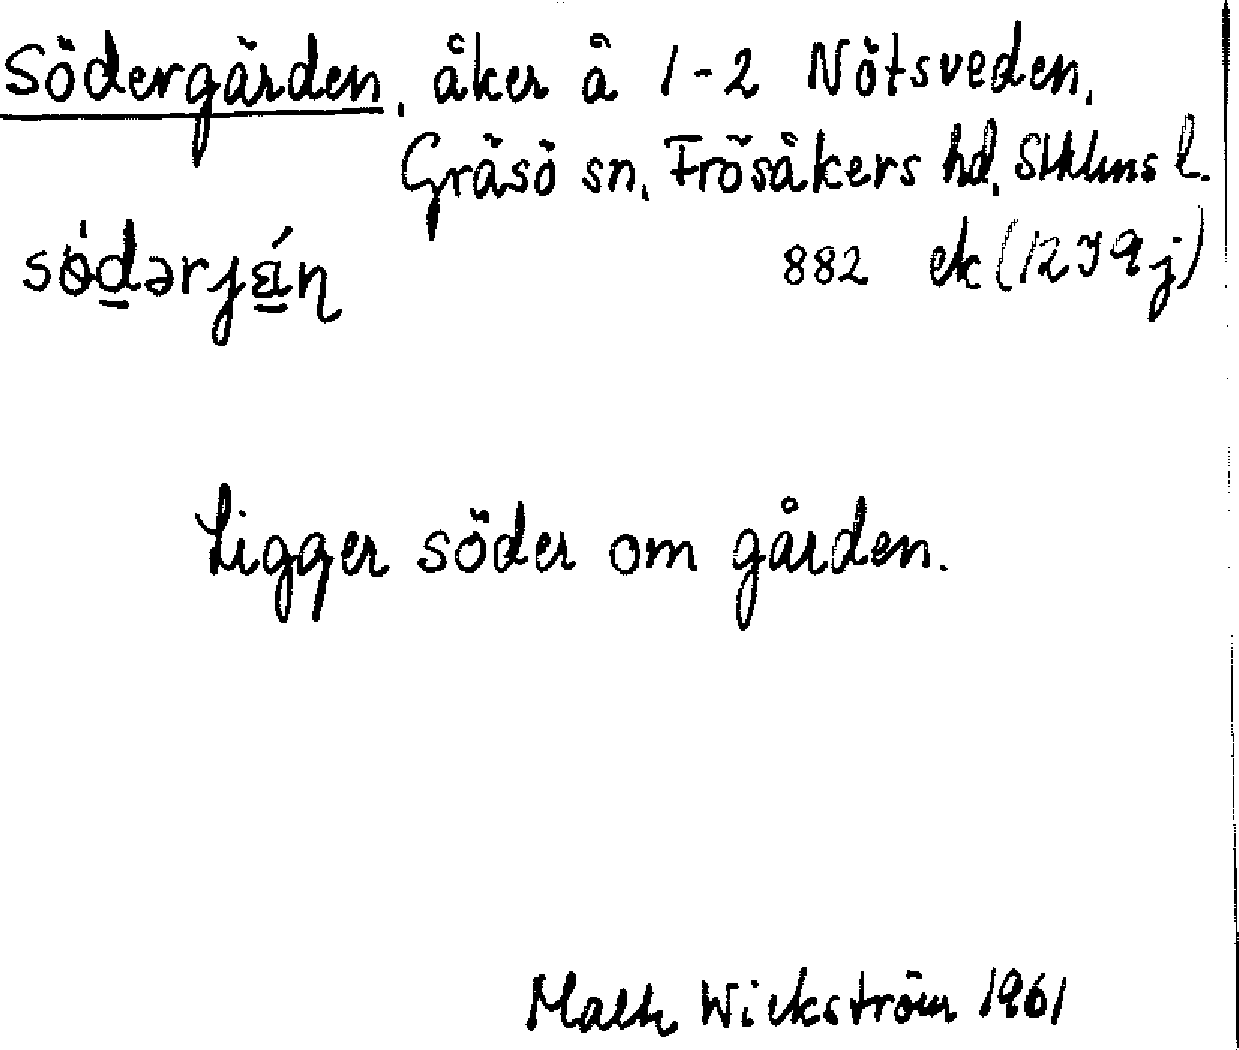 Södergärden, åker å 1-2 Nötsveden,
Gräsö sn, Frösåkers hd, Sthlms l.
882 ek (12 I 9 j)
Ligger söder om gården.
Wickström 1961